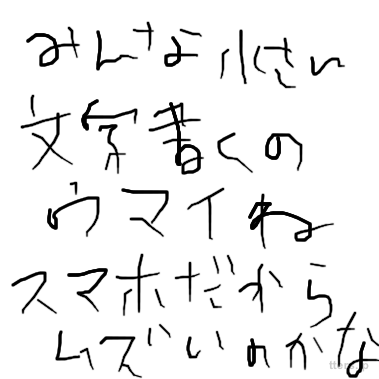 みんな小さい
文字書くの
ウマイね
スマホだから
ムズいのかな